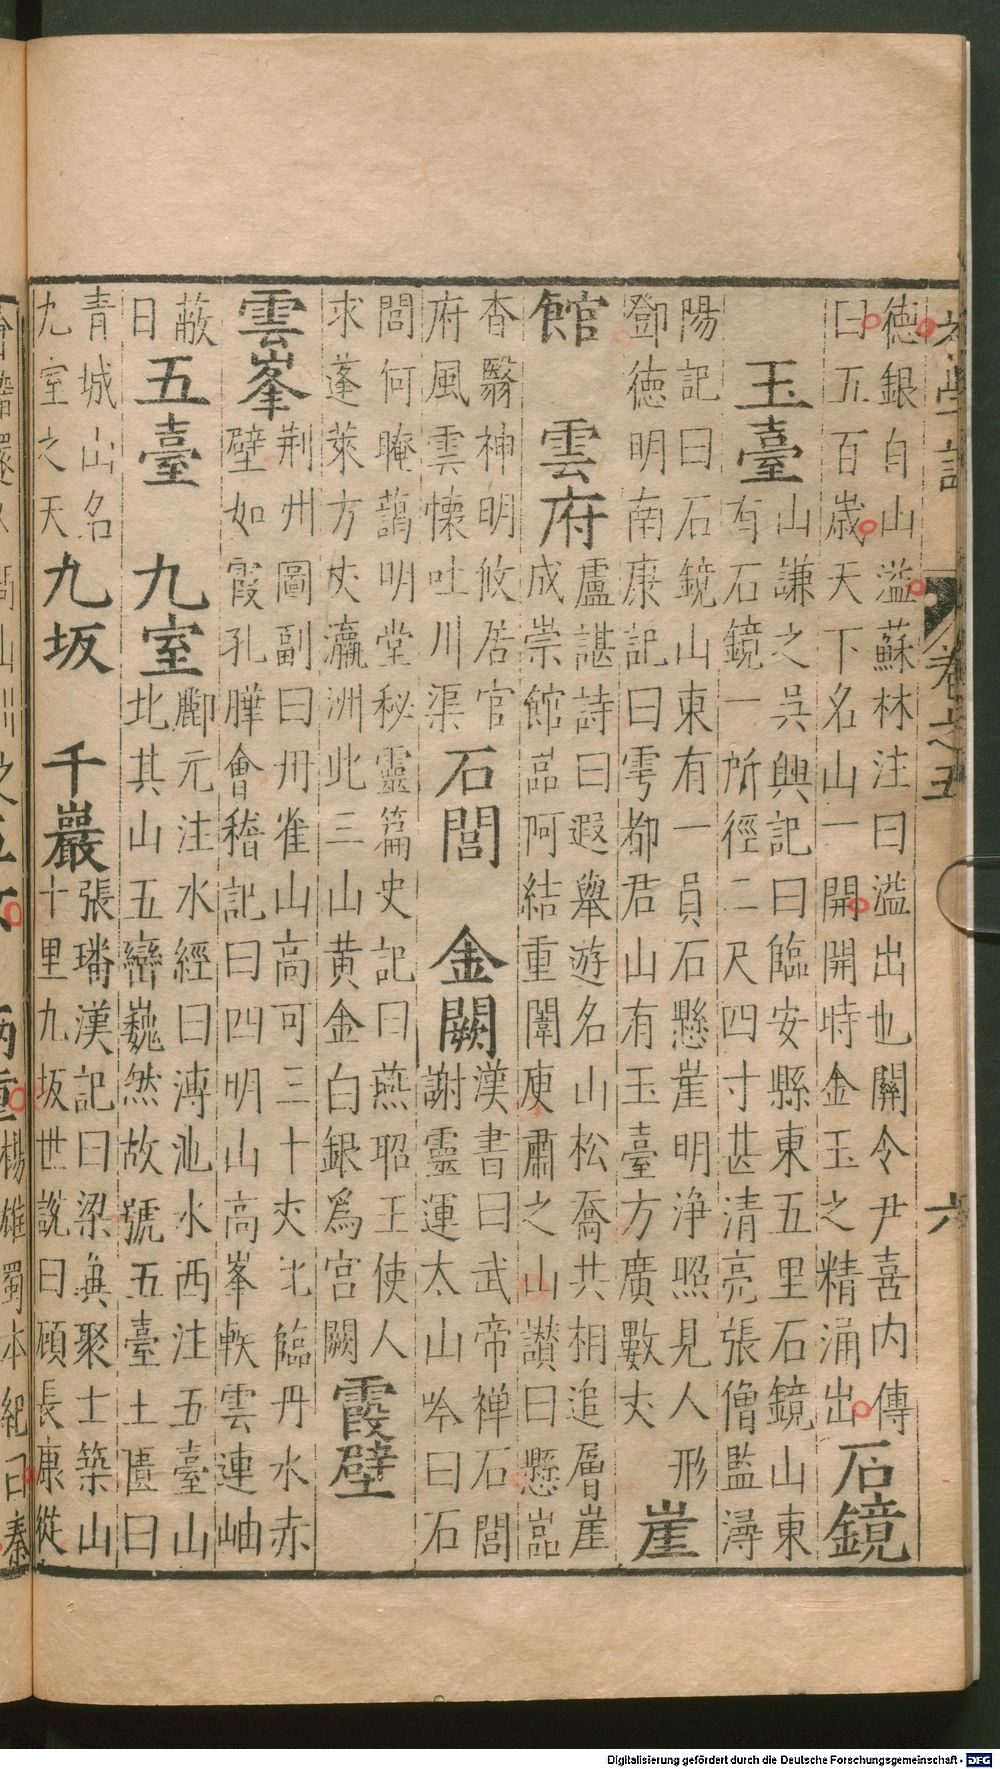 初學記 卷之五 六
德銀自山滥蘇林注曰滥出也關令尹喜内傳
曰五百歲天下名山一開開時金玉之精涌出
石鏡
玉臺
山謙之吳興記曰臨安縣東五里石鏡山東
有石鏡一所徑二尺四寸甚清亮張僧監潯
陽記曰石鏡山東有一員石懸崖明净照見人形
鄧德明南康記曰雩都君山有玉臺方廣數丈
崖
館 雲府
盧諶詩曰遐舉游名山松喬共相追層崖
成崇館嵓阿結重闈庾肅之山讃曰懸嵓
杳翳神明攸居官
府風雲懷吐川渠
石閭 金闕
漢書曰武帝禅石閭
謝靈運太山吟曰石
閭何晻藹明堂秘靈篇史記曰燕昭王使人
求蓬萊方丈瀛洲此三山黄金白銀爲宫闕
霞壁
雲峯
荆州圖副曰丹雀山高可三十丈北臨丹水赤
壁如霞孔曄會稽記曰四明山高峯軼雲連岫
蔽
日
五臺 九室
酈元注水經曰溥沲水西注五臺山
北其山五巒巍然故號五臺土匱曰
青城山名
九室之天
九坂 千巖
張璠漢記曰梁兾聚士築山
十里九坂世說曰顧長康從
楊雄蜀本紀曰秦
Digitalisierung gefördert durch die Deutsche Forschungsgemeinschaft - DFG